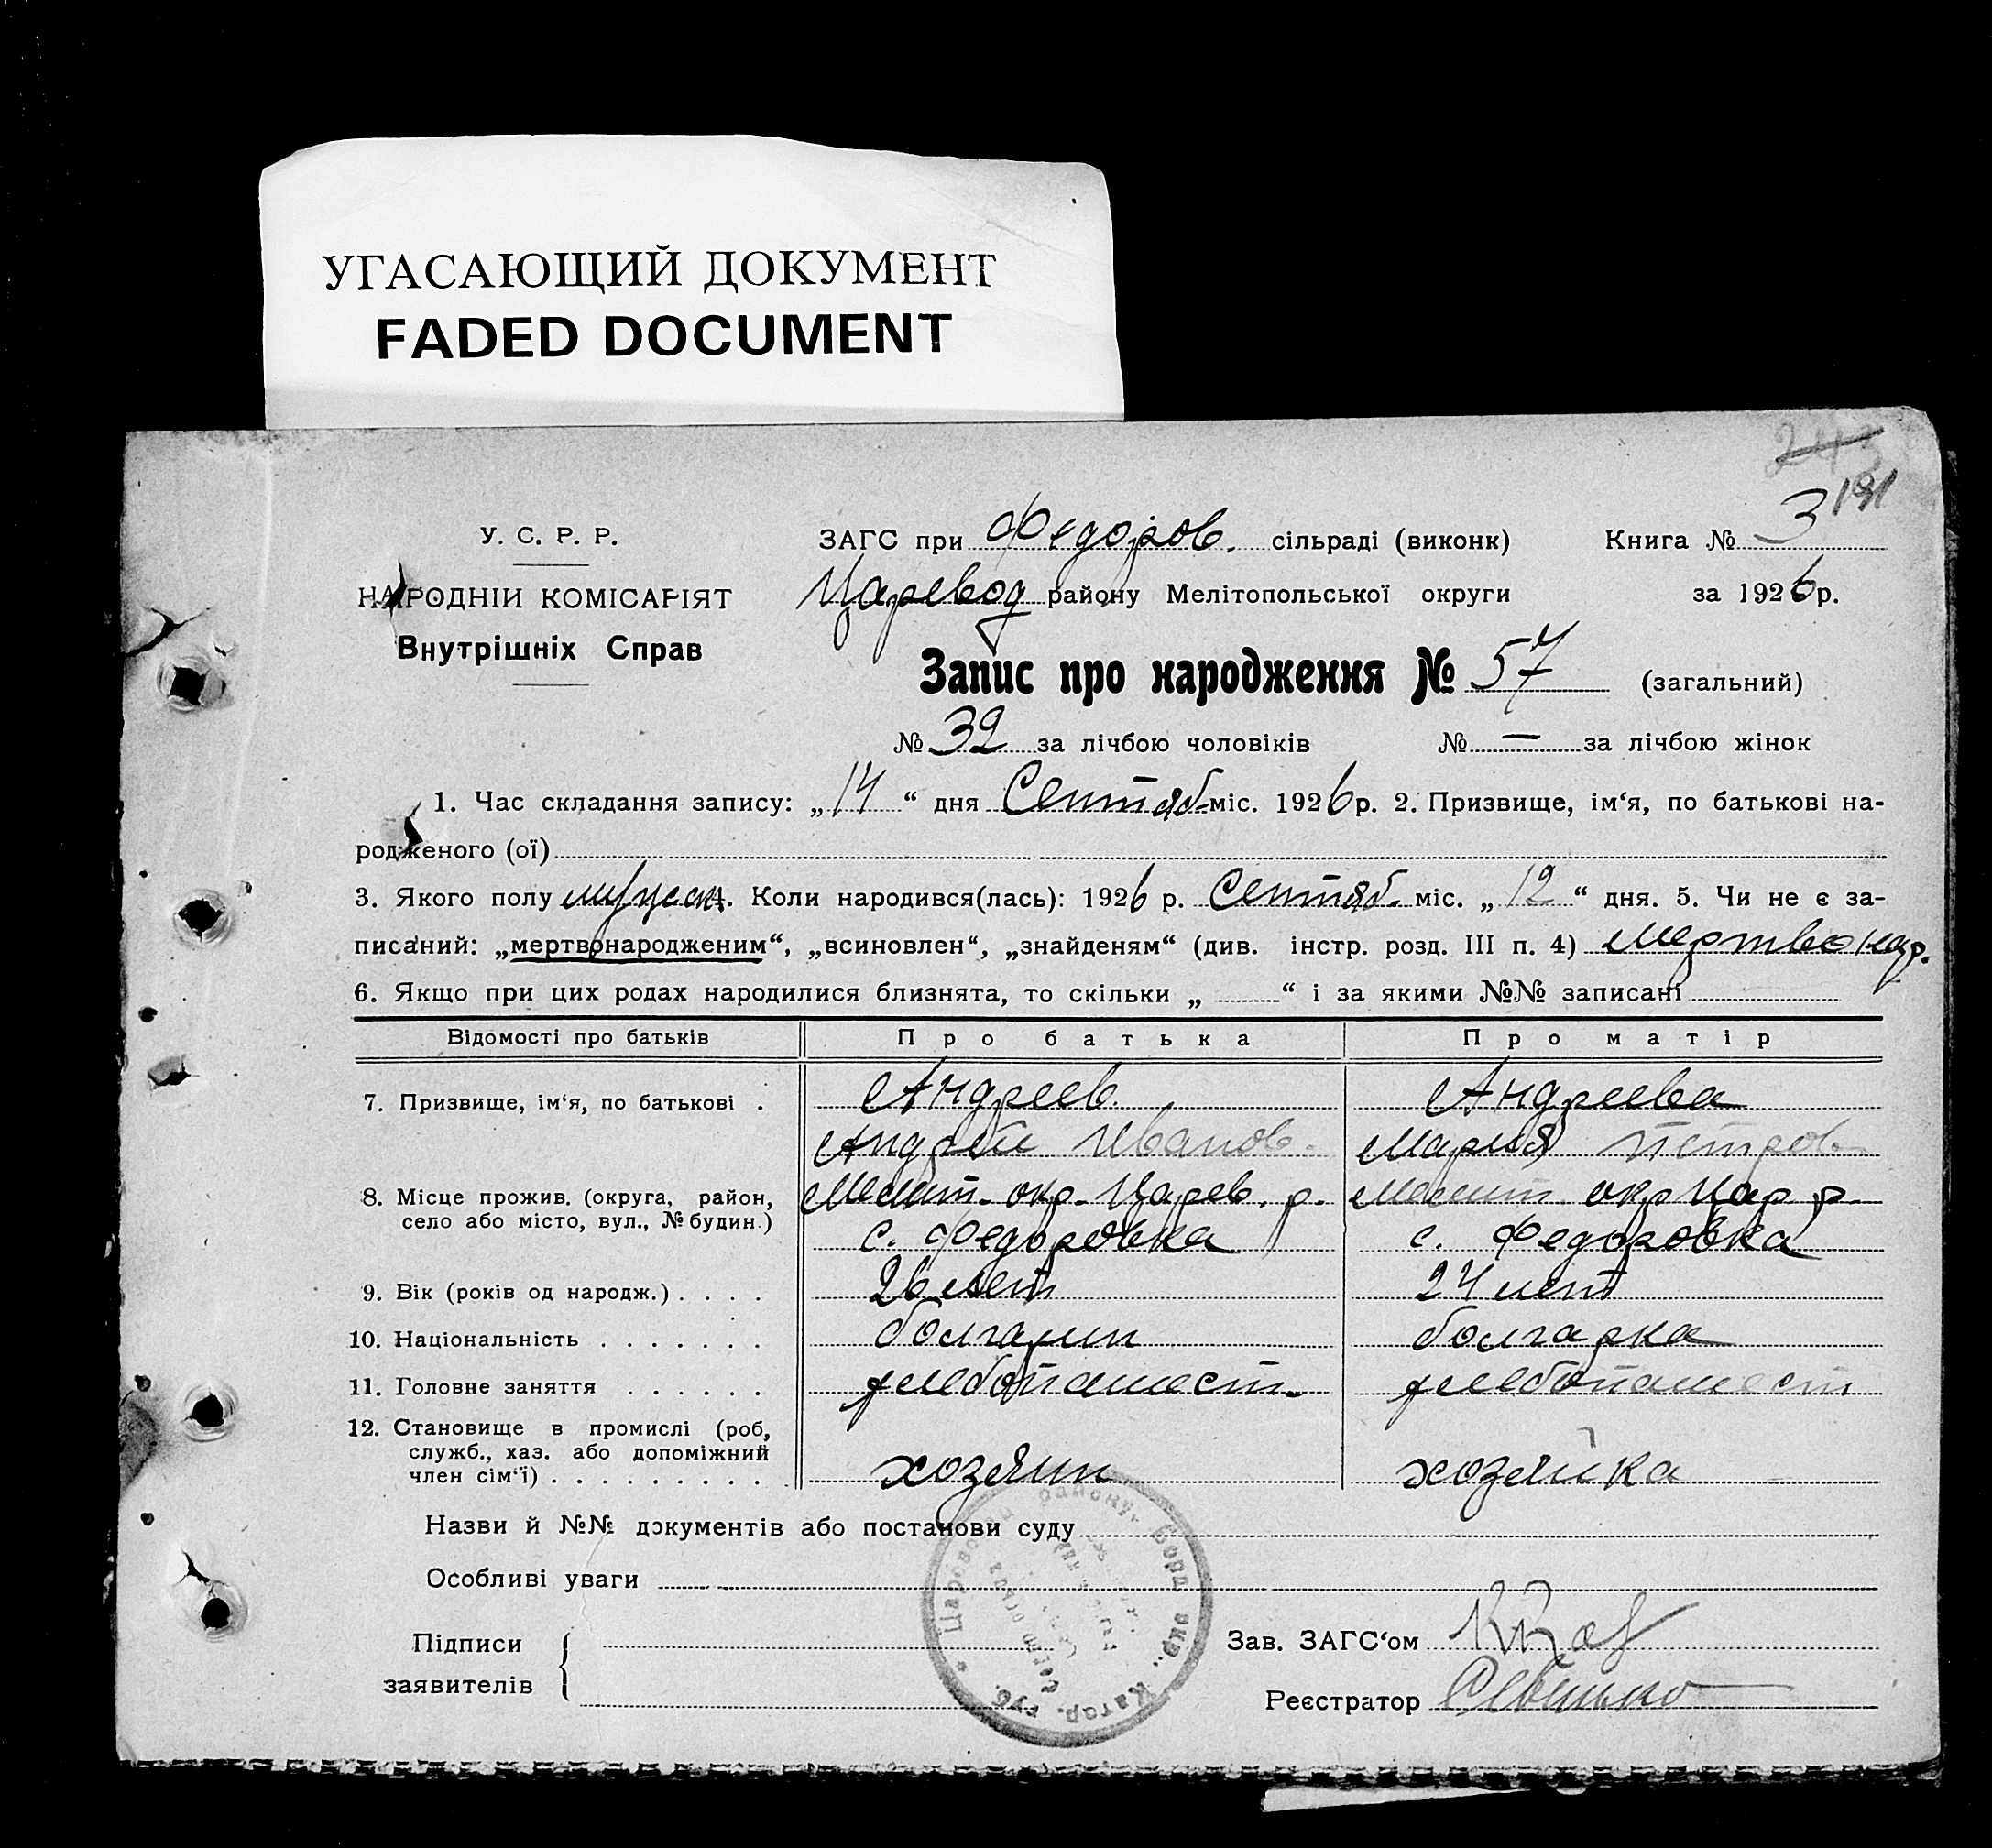 УГАСАЮЩИЙ ДОКУМЕНТ
FADED DOCUMENT
243
191
У. С. Р. Р.
НАРОДНІЙ КОМІСАРІЯТ
Внутрішніх Справ
ЗАГС при Федоров. сільраді (виконк) Книга № 3
Царевод району Мелітопольської округи за 1926 р.
Запис про народження № 57 (загальний)
№ 32 за лічбою чоловіків № — за лічбою жінок
1. Час складання запису: „14“ дня Сентяб. міс. 1926 р. 2. Призвище, ім‘я, по батькові на-
родженого (ої)
3. Якого полу мужск. 4. Коли народився(лась): 1926 р. Сентяб. міс. „12“ дня. 5. Чи не є за-
писаний: „мертвонародженим“, „всиновлен“, „знайденям“ (див. інстр. розд. III п. 4) Мертвонар.
6. Якщо при цих родах народилися близнята, то скільки „ “ і за якими №№ записані
Відомості про батьків Про батька Про матір
7. Призвище, ім‘я, по батькові . Андреев Андреева
Андрей Иванов. Мария Петров.
8. Місце прожив. (округа, район, Мелит. окр. Царев. р. Мелит. окр Цар р
село або місто, вул., № будин.) с. Федоровка с. Федоровка
9. Вік (років од народж.) . . . . 26 лет 24 лет
10. Національність . . . . . . . болгарин болгарка
11. Головне заняття . . . . . . хлебопашест. хлебопашест
12. Становище в промислі (роб,
служб., хаз. або допоміжний
член сім‘ї) . . . . . . . . . хозяин хозяйка
Назви й №№ документів або постанови суду
Особливі уваги
Підписи
заявителів
Зав. ЗАГС‘ом
Реєстратор
району, Берд. окр., Катер. губ.